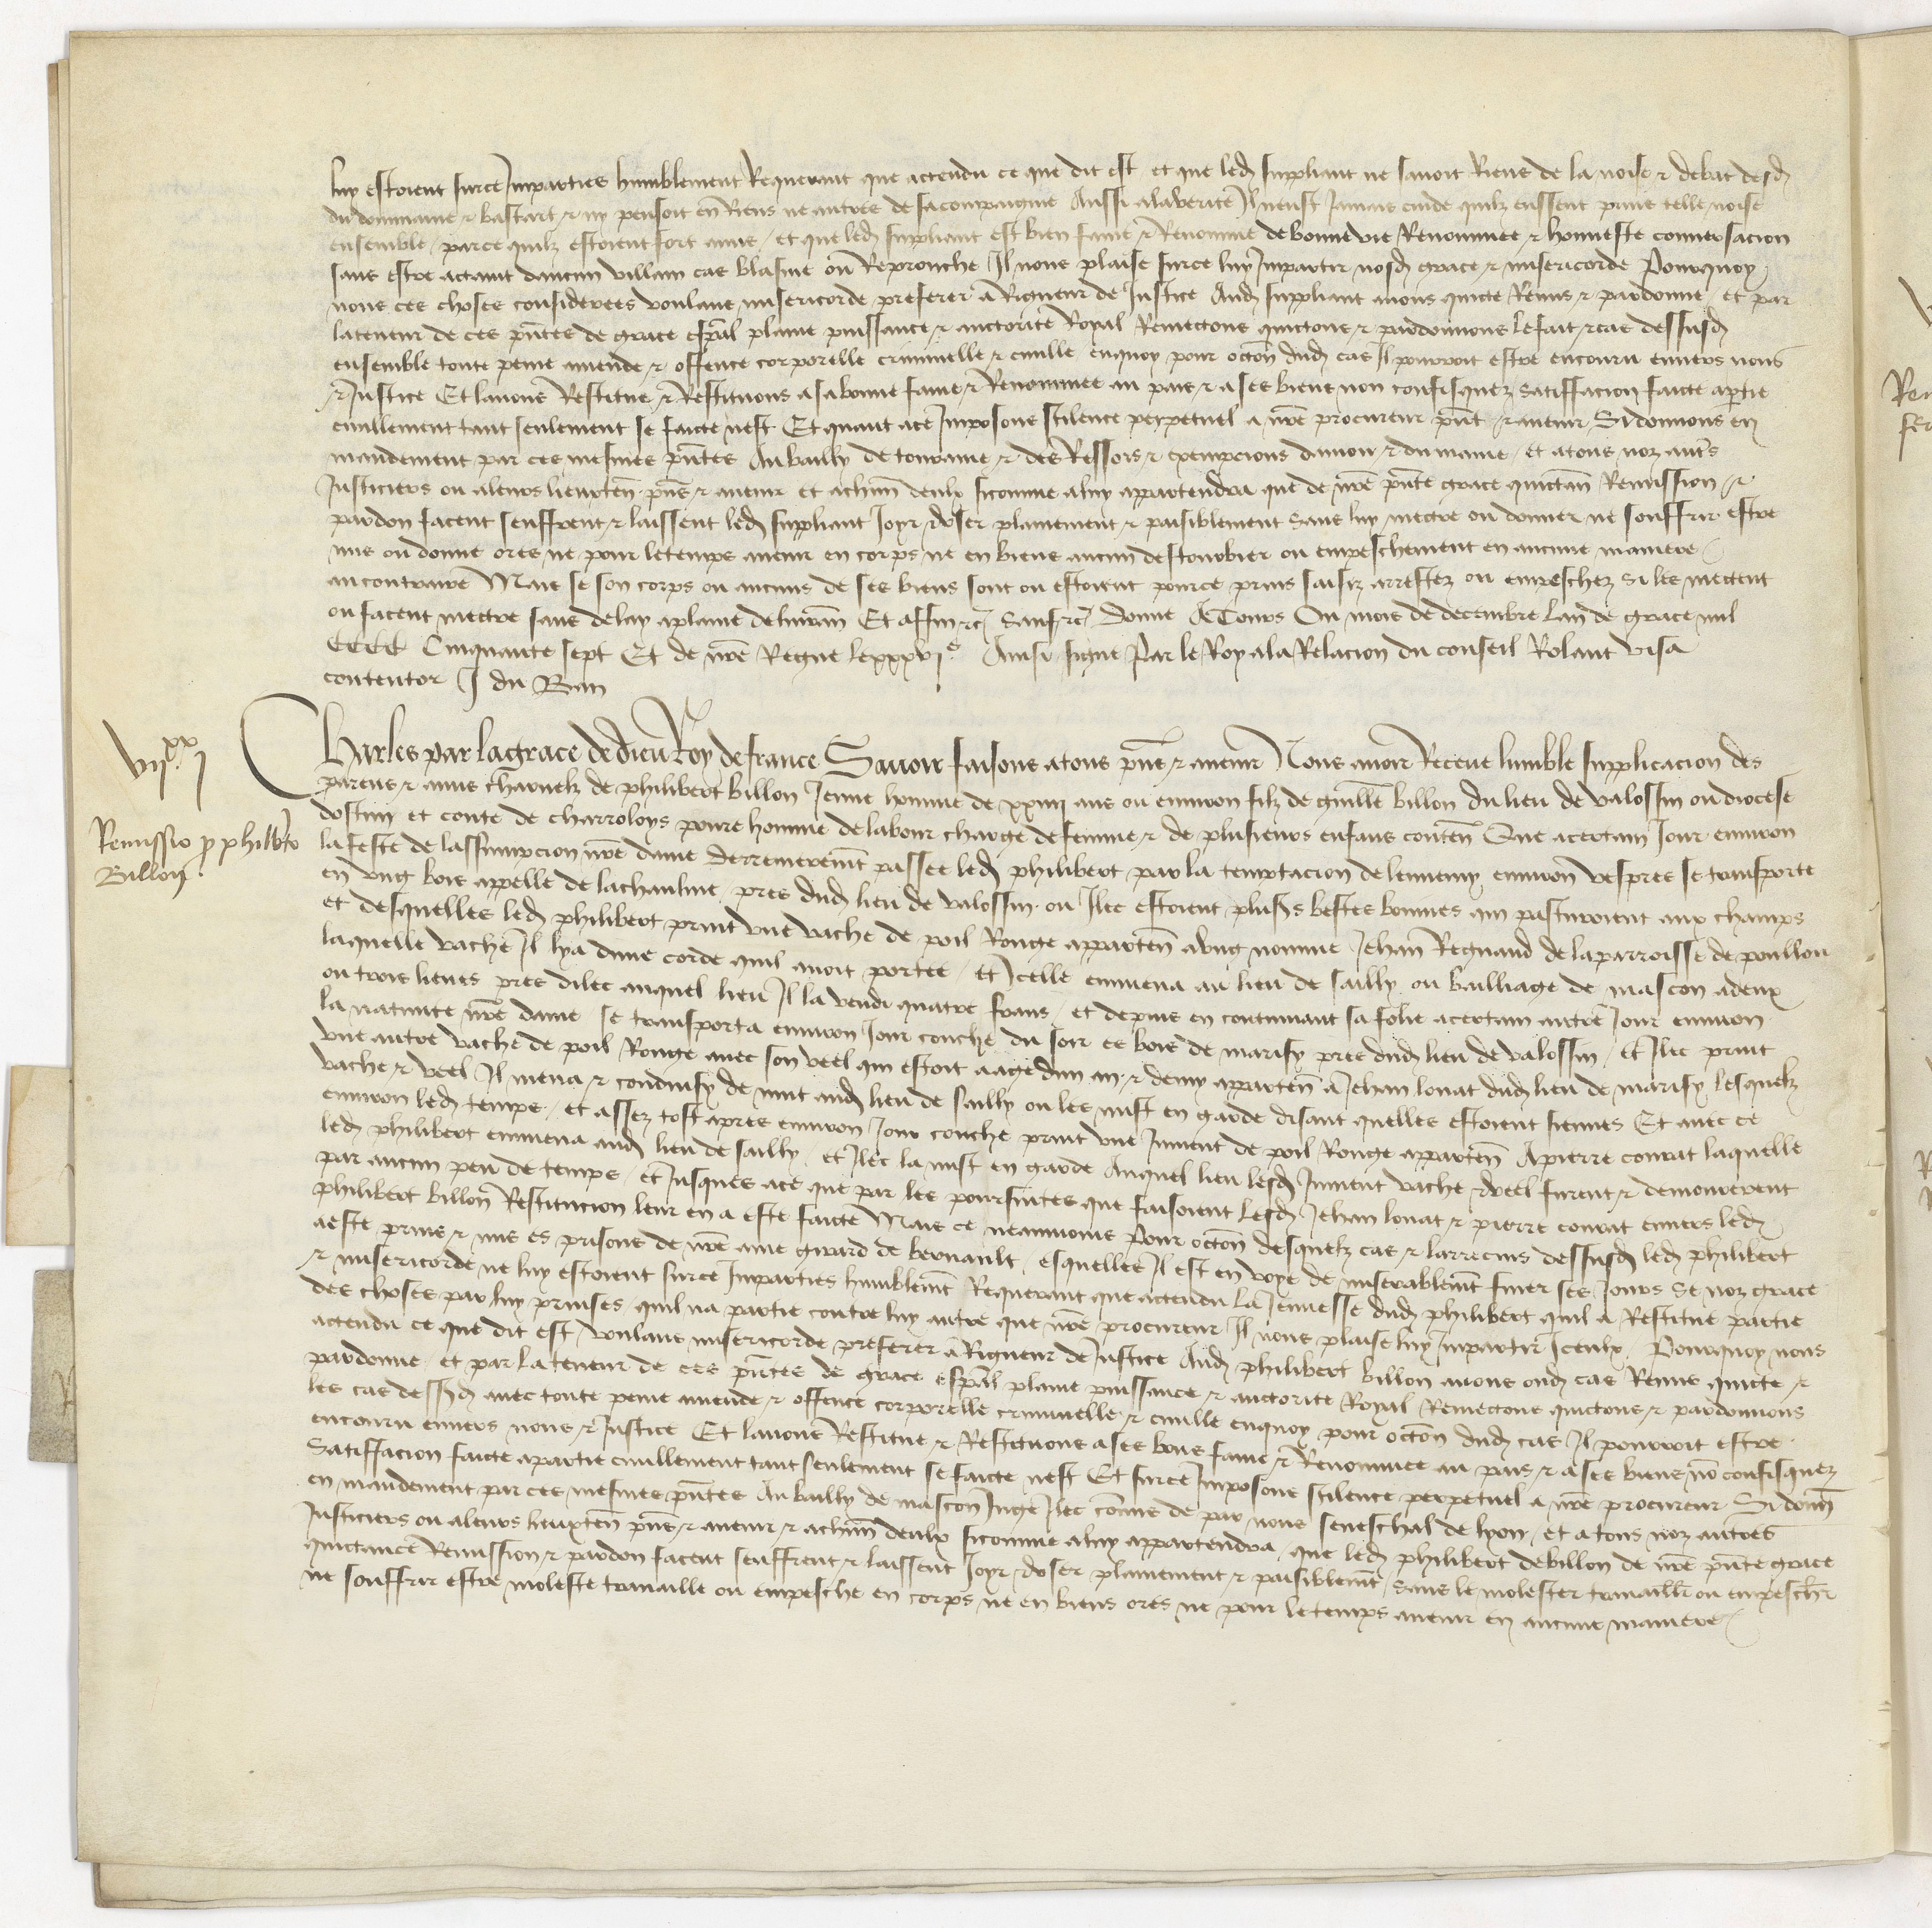 luy estoient sur ce Imparties humblement Requerant que actendu ce que dit est et que led suppliant ne savoit Riens de la noise & debat desd
du dommaine & bastart & ny pensoit en Riens ne autres de sa compaignie Aussi ala verite Il neust Jamais cuide quilz eussent prins telle noise
ensemble / parce quilz estoient fort amis / et que led suppliant est bien fame & Renomme de bonne vie Renommee & honneste conversacion
sans estre actaint daucun villain cas blasme ou Reprouche Il nous plaise sur ce luy Impartir nosd grace & misericorde Pourquoy
nous ces choses considerees voulans misericorde preferer a Rigueur de Justice Aud suppliant avons quicte Remis & pardonne / et par
la teneur de ces pntes de grace espal plaine puissance & auctorite Royal Remectons quictons & pardonnons le fait & cas dessusd
ensemble toute peine amende & offence corporelle criminelle & civille enquoy pour occon dud cas Il pourroit estre encouru envers nous
& Justice Et lavons Restitue & Restituons a sa bonne fame & Renommee au pais & a ses biens non confisquez satiffacion faicte aptie
civillement tant seulement se faicte nest Et quant ace Imposons scilence perpetuel a nre procureur pnt & avenir Si donnons en
mandement par ces mesmes pntes Au bailly de touraine & des Ressors & exempcions danjou & du maine / et atous noz autrs
Justiciers ou aleurs lieuxten pns & avenir et achun deulx sicomme aluy appartendra que de nre pnte grace quictan Remission &
pardon facent seuffrent & laissent led suppliant Joyr & user plainement & paisiblement sans luy mectre ou donner ne souffrir estre
mis ou donne ores ne pour letemps avenir en corps ne en biens aucun destourbier ou empeschement en aucune maniere
au contraire Mais se son corps ou aucuns de ses biens sont ou estoient pource prins saisiz arrestez ou empeschez si les mectent
ou facent mectre sans delay aplaine delivran Et affin &c Sauf &c Donne A Tours Ou mois de decembre Lan de grace mil
CCCC Cinquante sept Et de nre Regne le xxxvie Ainsi signe Par le Roy ala Relacion du conseil Rolant Visa
contentor J du Ban
VIIxxI
Charles par la grace de dieu Roy de france Savoir faisons a tous pns & avenir Nous avoir Receue lumble supplicacion des
parens & amis charnelz de philibert billon Jeune homme de xxiiii ans ou environ filz de guille billon du lieu de valossin ou diocese
Remissio p philibto
Billon
dostun et conte de charroloys povre homme de labour charge de femme & de plusieurs enfans conten Que acertain Jour environ
la feste de lassumpcion nre dame derrenieremt passee led philibert par la temptacion de lennemy environ vespres se transporta
en ung bois appelle de lachaulme pres dud lieu de valossin ou Ilec estoient plusrs bestes bonnes qui pasturoient aux champs
et desquelles led philibert print une vache de poil Rouge apparten a ung nomme Jehan Regnaud de la parroisse de poullon
laquelle vache Il lya dune corde quil avoit portee / et Icelle emmena au lieu de sailly ou bailliage de mascon a deux
ou trois lieues pres dilec auquel lieu Il la vendi quatre frans / et depuis en continuant sa folie acertain autre Jour environ
la nativite nre dame se transporta environ Jour couche du soir es bois de marisy pres dud lieu de valossin / et Ilec print
une autre vache de poil Rouge avec son veel qui estoit aage dun an & demy apparten a Jehan lonat dud lieu de marisy lesquelz
vache & veel Il mena & conduisy de nuit aud lieu de sailly ou les mist en garde disant quelles estoient siennes Et avec ce
environ led temps / et assez tost apres environ Jour couche print une Jument de poil Rouge apparten A pierre conrat laquelle
led philibert emmena aud lieu de sailly / et Ilec la mist en garde Auquel lieu lesd Jument vache & veel furent & demourerent
par aucun peu de temps / et Jusques ace que par les poursuites que faisoient lesd Jehan lonat & pierre conrat envers led
philibert billon Restitucion leur en a este faicte Mais ce neanmoins Pour occon desquelz cas & larrecins dessusd led philibert
a este prins & mis es prisons de nre ame girard de bernault / esquelles Il est en voye de miserablemt finer ses Jours se noz grace
& misericorde ne luy estoient sur ce Imparties humblemt Requerant que actendu la Jeunesse dud philibert quil a Restitue partie
des choses par luy prinses / quil na partie contre luy autre que nre procureur Il nous plaise luy Impartir Iceulx Pourquoy nous
actendu ce que dit est / voulans misericorde preferer a Rigueur de Justice Aud philibert billon avons oud cas Remis quicte &
pardonne / et par la teneur de ces pntes de grace espal plaine puissance & auctorite Royal Remectons quictons & pardonnons
les cas dessusd avec toute peine amende & offence corporelle criminelle & civille enquoy pour occon dud cas Il pourroit estre
encouru envers nous & Justice Et lavons Restitue & Restituons a ses bons fame & Renommee au pais & a ses biens no confisquez
Satiffacion faicte apartie civillement tant seulement se faicte nest Et sur ce Imposons scilence perpetuel a nre procureur Si donn
en mandement par ces mesmes pntes Au bailly de mascon Juge Ilec comis de par nous seneschal de lyon / et a tous noz autres
Justiciers ou aleurs lieuxten pns & avenir & achun deulx sicomme aluy appartendra que led philibert de billon de nre pnte grace
quictance Remission & pardon facent seuffrent & laissent Joyr & user plainement & paisiblemt sans le molester travaillr ou empeschr
ne souffrir estre moleste travaille ou empesche en corps ne en biens ores ne pour letemps avenir en aucune maniere